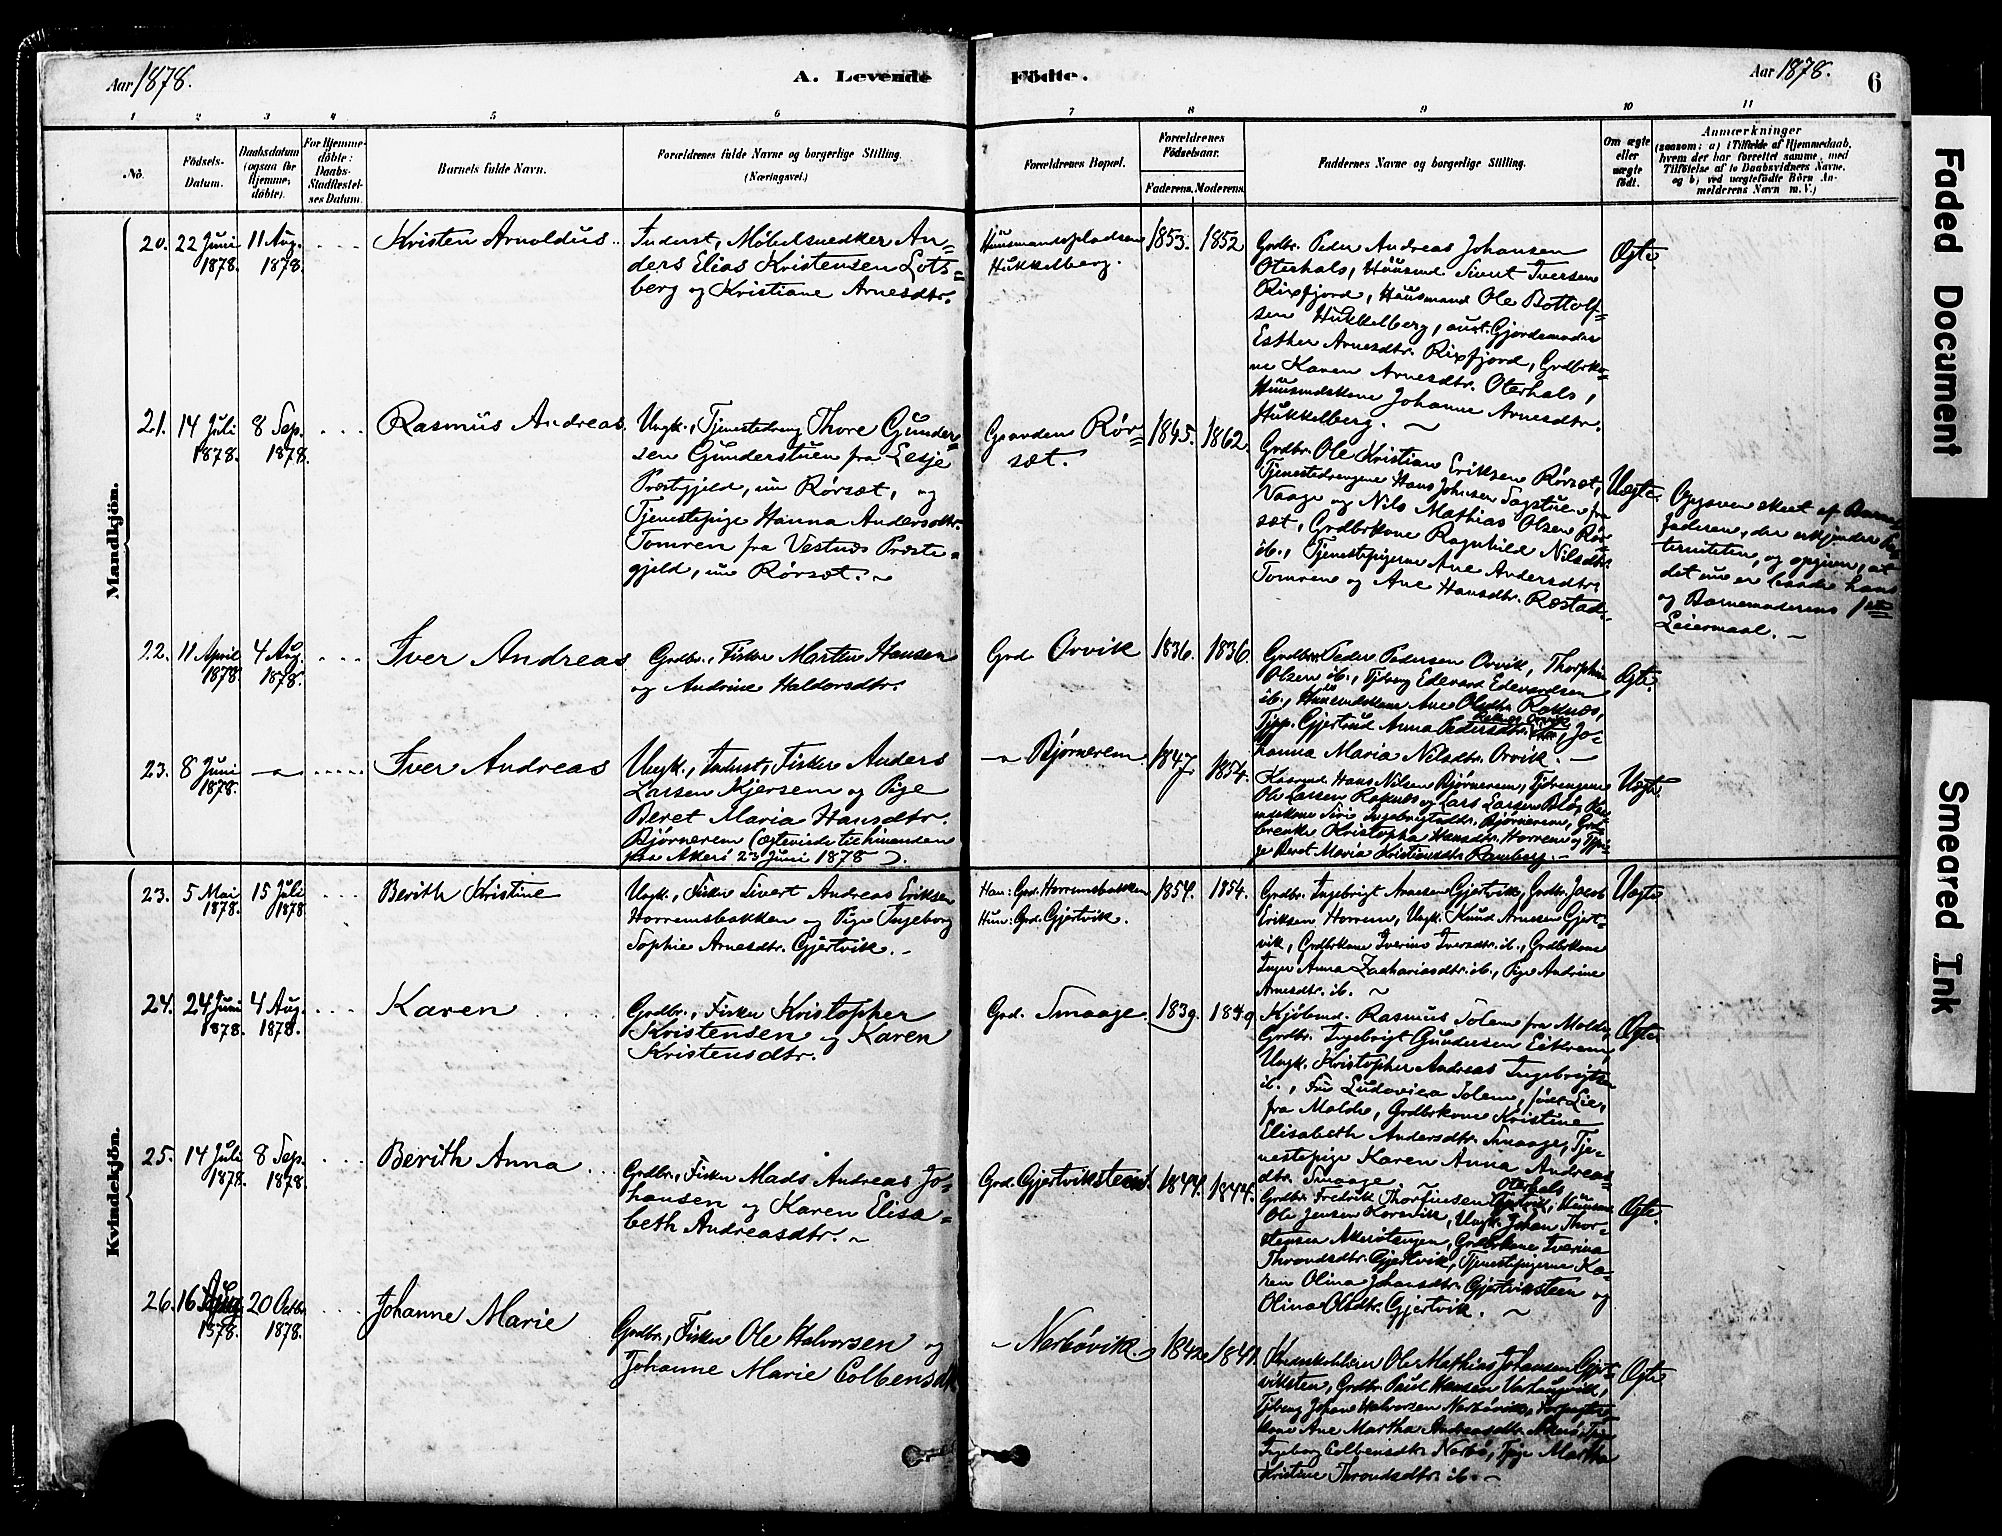 Aar 1878.
A. Levende
Fødte.
Aar 1878.
6
1 2 3 4 5 6 7 8 9 10 11
No.
Födsels-
Datum.
Daabsdatum
(ogsaa for
Hjemme-
döbte).
For Hjemme-
döbte:
Daabs-
Stadfæstel-
ses Datum.
Barnets fulde Navn.
Forældrenes fulde Navne og borgerlige Stilling.
(Næringsvei.)
Forældrenes Bopæl.
Forældrenes
Födselsaar.
Faderens. Moderens.
Faddernes Navne og borgerlige Stilling.
Om ægte
eller
uægte
födt.
Anmærkninger
(saasom: a) i Tilfælde af Hjemmedaab,
hvem der har forrettet samme, med
Tilföielse af to Daabsvidners Navne,
og b) ved uægtefödte Börn An-
melderens Navn m. V.)
Mandkjön.
20. 22 Juni 11 Aug.
1878. 1878.
Kristen Arnoldus
Inderst, Møbelsnedker An-
ders Elias Kristensen Lots-
berg og Kristiane Arnesdtr.
Huusmandspladsen
Hukkelberg.
1853. 1852
Grdbr. Peder Andreas Johansen
Oterhals, Huusmd Sivert Iversen
Rixfjord, Huusmand Ole Bottolf-
sen Hukkelberg, Gjordemoder
Esther Arnesdtr. Rixfjord, Grdbrko-
ne Karen Arnesdtr. Oterhals,
Huusmdskone Johanne Arnesdtr.
Hukkelberg.
Ægte.
21. 14 Juli 8 Sep.
1878. 1878.
Rasmus Andreas.
Ungk., Tjenestedreng Thore Gunder-
sen Gunderstuen fra Lesje
Præstegjeld, nu Rørsæt, og
Tjenestepige Hanna Andersdtr.
Tomren fra Vestnæs Præste-
gjeld, nu Rørsæt.
Gaarden Rør-
sæt.
1845. 1862.
Grdbr. Ole Kristian Eriksen Rørsæt,
Tjenestedrengene Hans Johnsen Sagstuen fra
Vaage og Nils Mathias Olsen Rør-
sæt, Grdbrkone Ragnhild Nilsdtr.
ib., Tjenestepigerne Ane Andersdtr.
Tomren og Ane Hansdtr. Ræstad.
Uægte.
Opgaven skeet af Barne-
faderen, der erkjender Pa-
terniteten, og opgiver, at
det nu er hans
og Barnemoderens 1ste
Leiermaal.
22. 11 April 4 Aug.
1878. 1878.
Iver Andreas
Grdbr., Fisker Martin Hansen
og Andrine Haldorsdtr.
Grd. Orvik
1836. 1836.
Grdbr. Peder Pedersen Orvik, Thorphin
Olsen ib., Tjdreng Edevard Edevardsen
ib., Huusmdskone Ane Olsdtr. Raknæs,
Tjpg. Gjertrud Anna Pedersdtr. Jo-
hanna Maria Nilsdtr. Orvik.
Ægte.
23. 8 Juni
1878.
Iver Andreas
Ungk., Inderst, Fisker Anders
Larsen Kjersem og Pige
Beret Maria Hansdtr.
Bjørnerem (ægteviede til hinanden
paa Akerø 23 Juni 1878).
Bjørnerem
1847 1854.
Hans Nilsen Bjørnerem, Tjdrengene
Ole Larsen Raknæs og Lars Larsen
Siri Ingebrigtsdtr. Bjørnerem, Grd-
Kristopha Hansdtr. Horrem og Tjpi-
ge Beret Maria Kristiansdtr. Ramberg.
Uægte.
Kvindekjön.
23. 5 Mai 15 Juli
1878. 1878
Berith Kristine
Ungk., Fisker Sivert Andreas Eriksen
Horremsbakken og Pige Ingeborg
Sophie Arnesdtr. Gjertvik.
Han: Grd. Horremsbakken
Hun: Grd. Gjertvik.
1854. 1854.
Grdbr. Ingebrigt Arnesen Gjertvik, Grdbr. Jacob
Eriksen Horrem, Ungk. Knud Arnesen Gjert-
vik, Grdbrkone Iverine Iversdtr. ib., Grdbrkone
Inger Anna Zachariasdtr. ib., Pige Andrine
Arnesdtr. ib.
Uægte
24. 24 Juni 4 Aug.
1878. 1878.
Karen
Grdbr., Fisker Kristopher
Kristensen og Karen
Kristensdtr.
Grd. Smaage.
1839. 1849
Kjøbmd. Rasmus Solem fra Molde,
Grdbr. Ingebrigt Gundersen Eikrem,
Ungk. Kristopher Andreas Ingebrigts
ib., Fru Ludovica Solem, født Lie,
fra Molde, Grdbrkone Kristine
Elisabeth Andersdtr. Smaage, Tje-
nestepige Karen Anna Andreas-
dtr. Smaage.
Ægte
25. 14 Juli 8 Sep.
1878. 1878.
Berith Anna
Grdbr., Fisker Mads Andreas Jo-
hansen og Karen Elisa-
beth Andreasdtr.
Grd. Gjertviksteen.
1844. 1844.
Oterhals
Grdbr. Fredrik Thorfinsen Huusm
Ole Jensen Korsvik, Ungk. Johan Thor-
stensen Akerøtangen, Grdbrkone Iverina
Throndsdtr. Gjertvik, Tjenestepigerne Ka-
ren Olina Johansdtr. Gjertviksteen og
Olina Olsdtr. Gjertvik.
Ægte.
26. 16 Aug. 20 Octbr
1878. 1878.
Johanne Marie
Grdbr., Fisker Ole Halvorsen og
Johanne Marie Colbensdtr
Nerbøvik.
1842 1841.
Ole Mathias Johansen Gjert-
viksten, Grdbr. Paul Hansen
Tjdreng Johan Halvorsen Nerbøvik,
kone Ane Martha Andreasdtr. Akerø, Tjpige
Ingeborg Colbensdtr. Nerbø, Tjpige Martha
Kristine Throndsdtr. ib.
Ægte
Faded Document
Smeared Ink